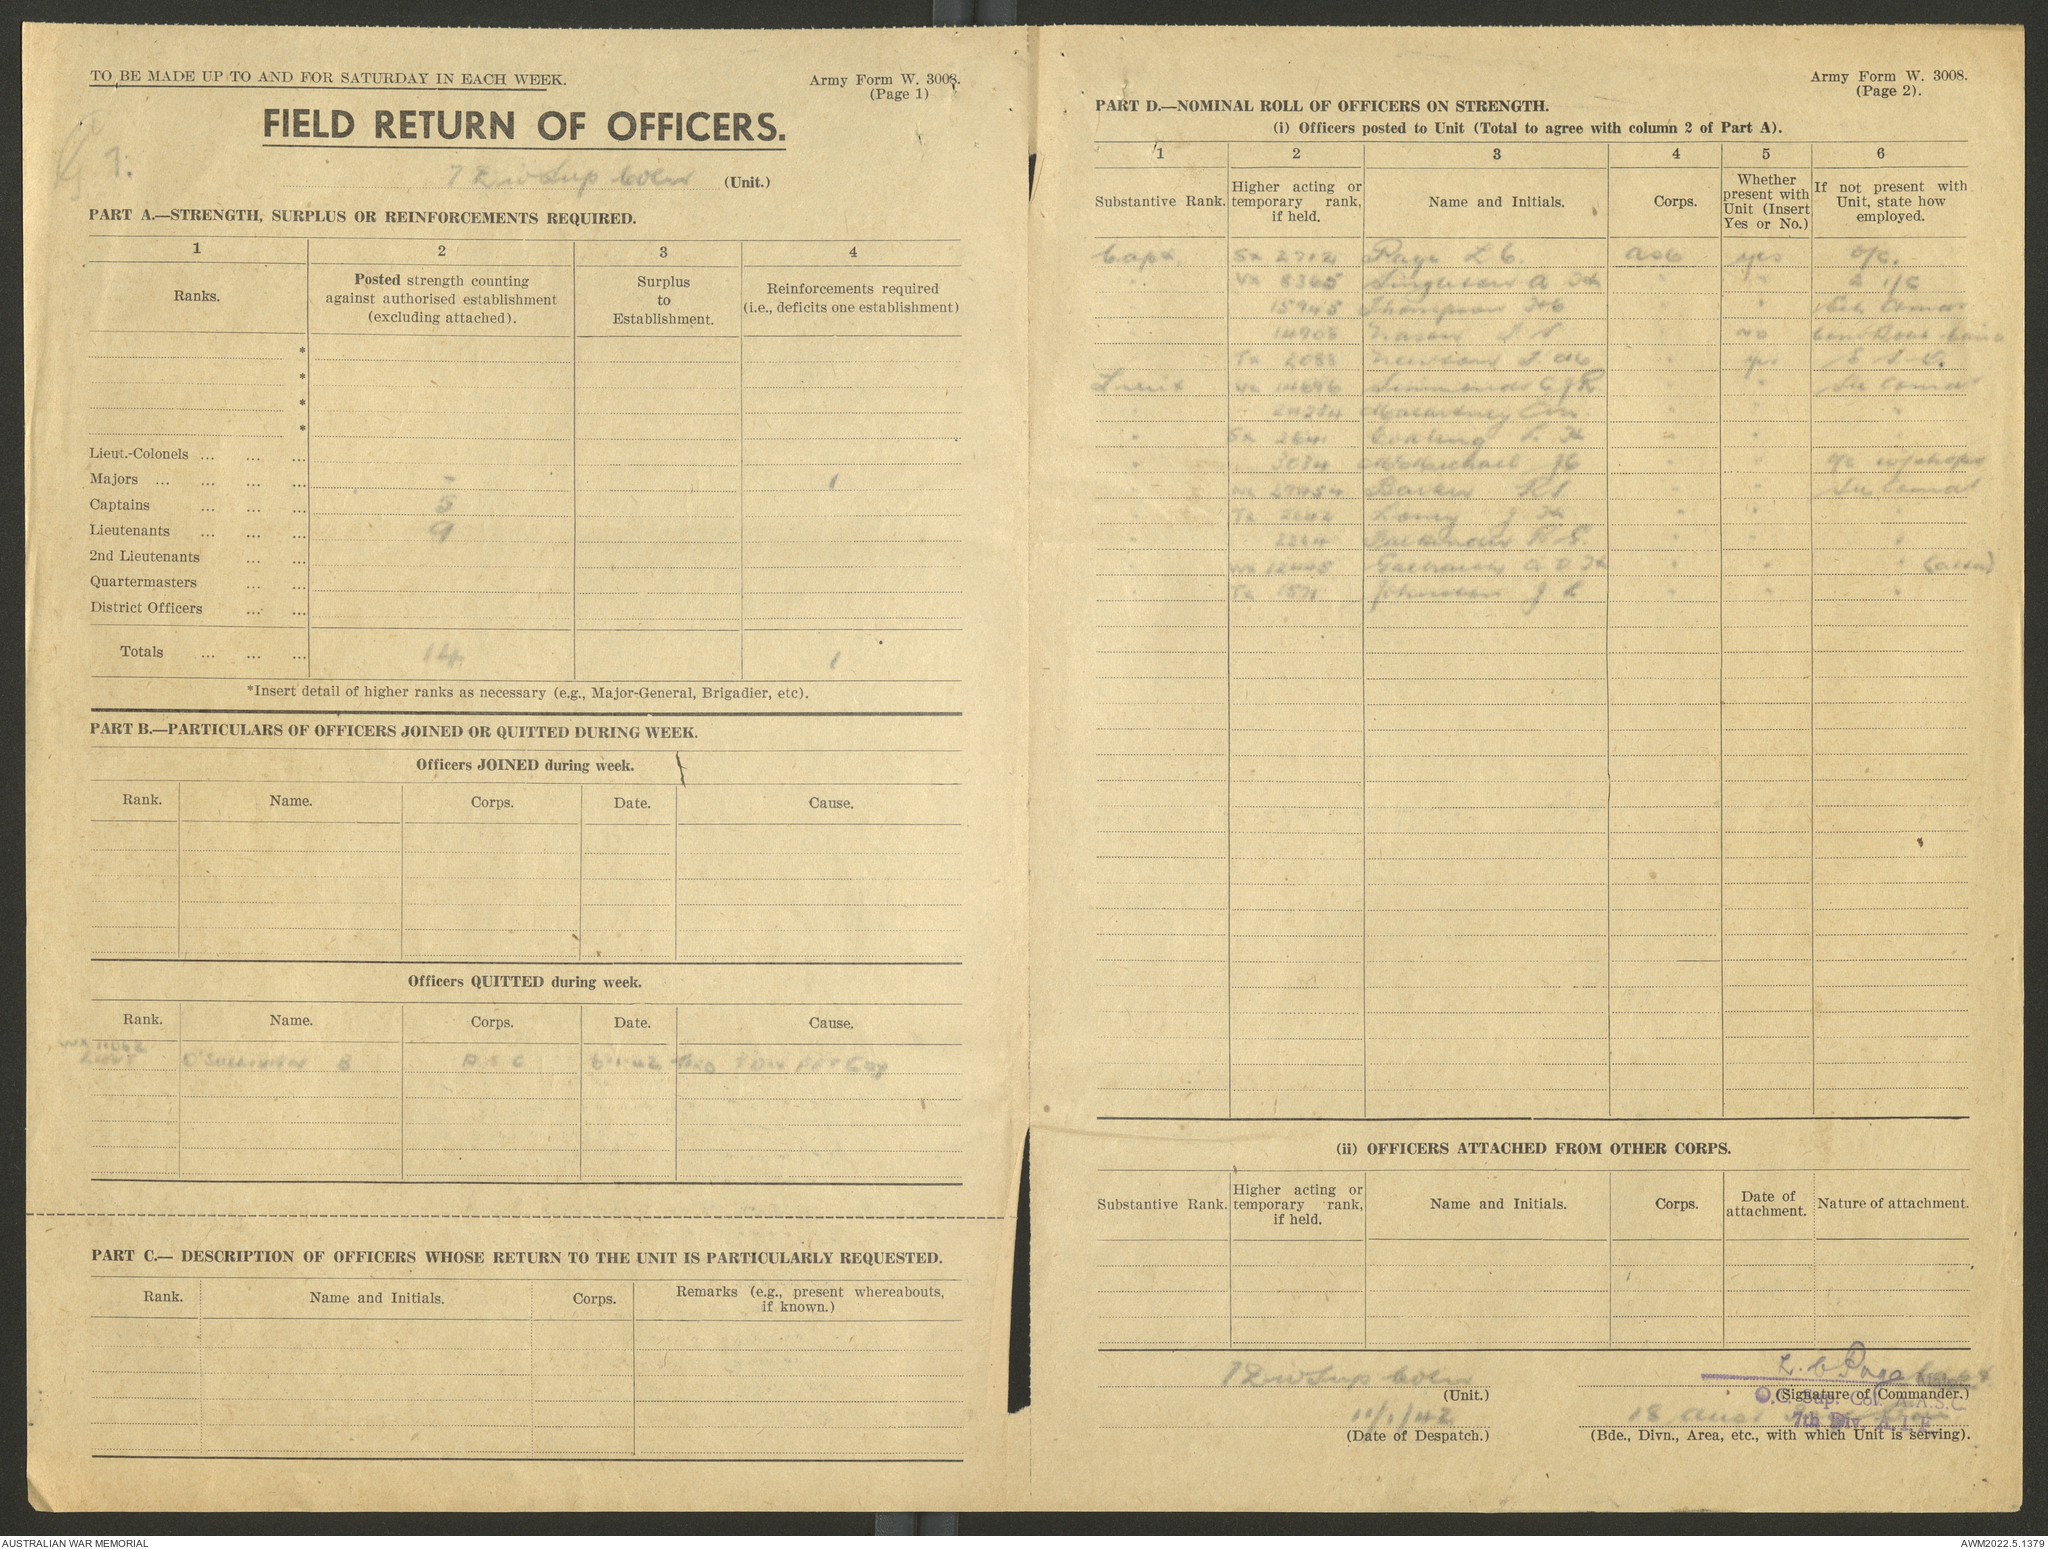 TO BE MADE UP TO AND FOR SATURDAY IN EACH WEEK.
Army Form W. 3008.
(Page 1)
FIELD RETURN OF OFFICERS.
7 Div Sup Coln (Unit.)
PART A.—STRENGTH, SURPLUS OR REINFORCEMENTS REQUIRED.
1 2 3 4
Ranks.
Posted strength counting against authorised establishment (excluding attached).
Surplus to Establishment.
Reinforcements required (i.e., deficits one establishment)
*
*
*
*
Lieut.-Colonels ... ... ...
Majors ... ... ... ... - 1
Captains ... ... ... 5
Lieutenants ... ... ... 9
2nd Lieutenants ... ...
Quartermasters ... ...
District Officers ... ...
Totals ... ... ... 14 1
*Insert detail of higher ranks as necessary (e.g., Major-General, Brigadier, etc).
PART B.—PARTICULARS OF OFFICERS JOINED OR QUITTED DURING WEEK.
Officers JOINED during week.
Rank. Name. Corps. Date. Cause.
Officers QUITTED during week.
Rank. Name. Corps. Date. Cause.
LIEUT O'SULLIVAN B A.S.C 6-1-42 7 Div Pet Coy
PART C.— DESCRIPTION OF OFFICERS WHOSE RETURN TO THE UNIT IS PARTICULARLY REQUESTED.
Rank. Name and Initials. Corps. Remarks (e.g., present whereabouts, if known.)
Army Form W. 3008.
(Page 2).
PART D.—NOMINAL ROLL OF OFFICERS ON STRENGTH.
(i) Officers posted to Unit (Total to agree with column 2 of Part A).
1 2 3 4 5 6
Substantive Rank.
Higher acting or temporary rank, if held.
Name and Initials.
Corps.
Whether present with Unit (Insert Yes or No.)
If not present with Unit, state how employed.
Capt. Sx 2712 Page L C. ASC yes O/C.
" Vx 8365 Singleton A " " 2 i/c
15945 Thompson " "
14908 Nason " no
Tx 2088 Newson " yes
Lieut Vx Simmonds C J R. " "
" Macartney " " "
" Sx 2641 " " "
" 3034 McMichael J C " " O/C W/shops
" 27454 Barker " "
" Tx 2642 Loney J " " "
" 2264 Parkinson R E. " " "
" 12445 Galbraith " " "
" Tx 1571 Johnston J " " "
(ii) OFFICERS ATTACHED FROM OTHER CORPS.
Substantive Rank.
Higher acting or temporary rank, if held.
Name and Initials.
Corps.
Date of attachment.
Nature of attachment.
7 Div Sup Coln
(Unit.)
L. C Page Capt
(Signature of Commander.)
O.C. Sup. Col. A.A.S.C.
7th Div. A.I.F.
11/1/42
(Date of Despatch.)
18 Aust
(Bde., Divn., Area, etc., with which Unit is serving).
AUSTRALIAN WAR MEMORIAL
AWM2022.5.1379